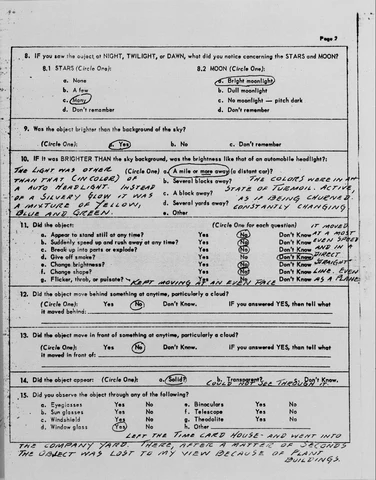 Page 7
8. IF you saw the object at NIGHT, TWILIGHT, or DAWN, what did you notice concerning the STARS and MOON?
8.1 STARS (Circle One): 8.2 MOON (Circle One):
a. None a. Bright moonlight
b. A few b. Dull moonlight
c. Many c. No moonlight – pitch dark
d. Don't remember d. Don't remember
9. Was the object brighter than the background of the sky?
(Circle One): a. Yes b. No c. Don't remember
10. IF it was BRIGHTER THAN the sky background, was the brightness like that of an automobile headlight?:
THE LIGHT WAS OTHER (Circle One) a. A mile or more away (a distant car)?
THAN THAT (IN COLOR) OF b. Several blocks away? THE COLORS WERE IN A
A AUTO HEADLIGHT. INSTEAD c. A block away? STATE OF TURMOIL. ACTIVE,
OF A SILVERY GLOW IT WAS d. Several yards away? AS IF BEING CHURNED.
A MIXTURE OF YELLOW, e. Other CONSTANTLY CHANGING
BLUE AND GREEN.
11. Did the object: (Circle One for each question) IT MOVED
a. Appear to stand still at any time? Yes No Don't Know AT A MOST
b. Suddenly speed up and rush away at any time? Yes No Don't Know EVEN SPEED
c. Break up into parts or explode? Yes No Don't Know AND IN A
d. Give off smoke? Yes No Don't Know DIRECT
e. Change brightness? Yes No Don't Know STRAIGHT
f. Change shape? Yes No Don't Know LINE. EVEN
g. Flicker, throb, or pulsate? Yes No Don't Know AS A PLANE
KEPT MOVING AT AN EVEN PACE
12. Did the object move behind something at anytime, particularly a cloud?
(Circle One): Yes No Don't Know. IF you answered YES, then tell what
it moved behind:
13. Did the object move in front of something at anytime, particularly a cloud?
(Circle One): Yes No Don't Know. IF you answered YES, then tell what
it moved in front of:
14. Did the object appear: (Circle One): a. Solid? b. Transparent? c. Don't Know.
COULD NOT SEE THROUGH IT
15. Did you observe the object through any of the following?
a. Eyeglasses Yes No e. Binoculars Yes No
b. Sun glasses Yes No f. Telescope Yes No
c. Windshield Yes No g. Theodolite Yes No
d. Window glass Yes No h. Other
LEFT THE TIME CARD HOUSE - AND WENT INTO
THE COMPANY YARD. THERE, AFTER A MATTER OF SECONDS
THE OBJECT WAS LOST TO MY VIEW BECAUSE OF PLANT
BUILDINGS.